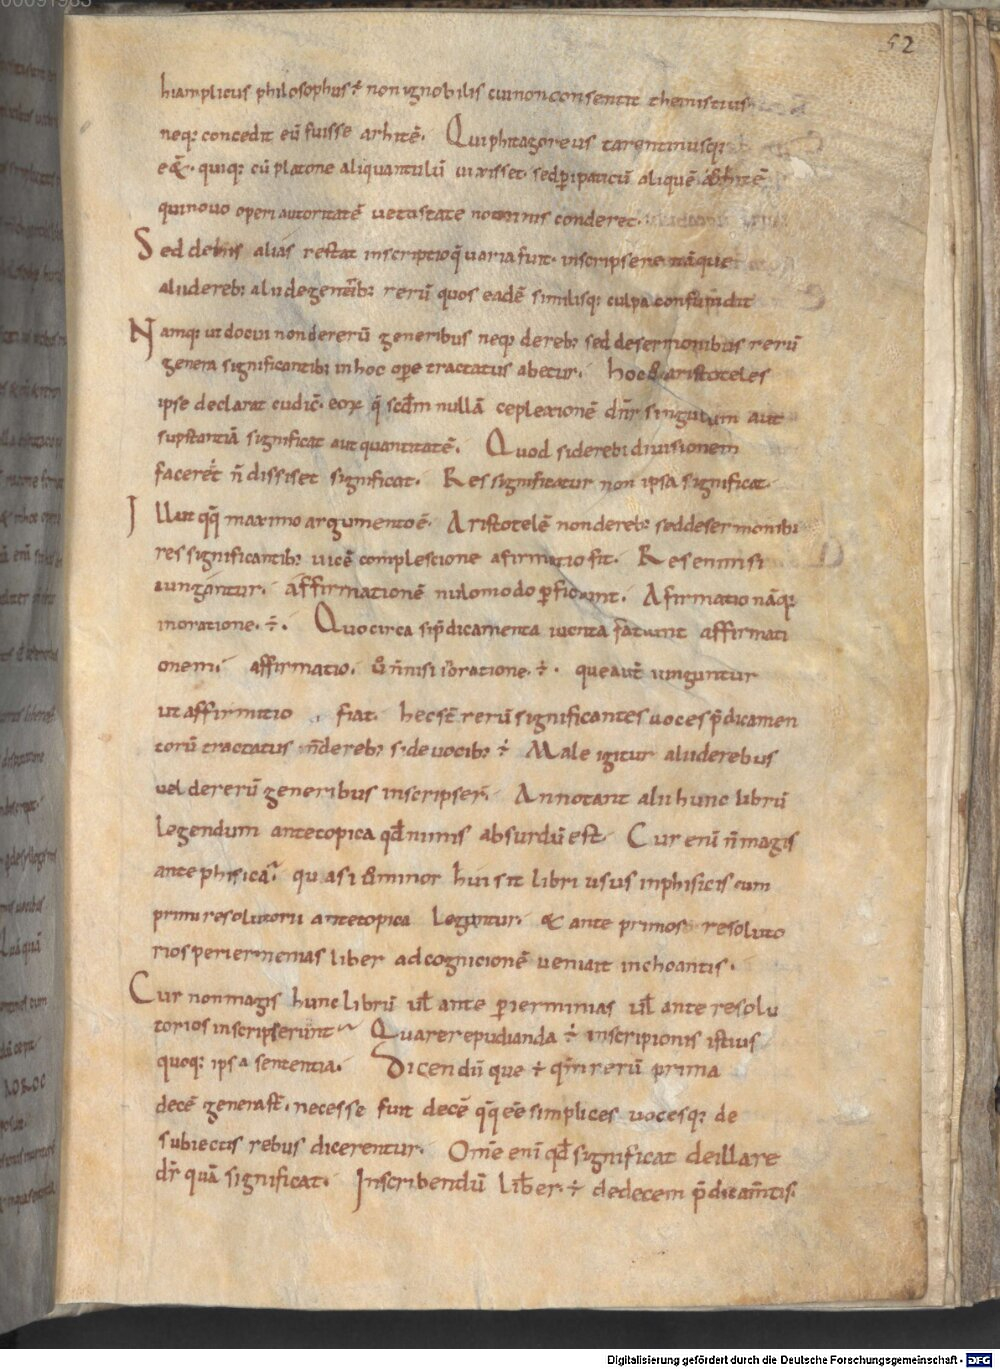 00091983
52
hiamplicus philosophus ÷ non ignobilis cui non consentit themistius
neq; concedit eū fuisse arhitē. Qui phitagoreus tarentinusq;
eēt. quiq; cū platone aliquantulū uixisset. sed p̄ipaticū aliquē arhitē
qui nouo operi autoritatē uetustate nominis conderet.
Sed de his alias restat inscriptio q̄ uaria fuit. inscripsere nāque
alii de reb; alii de generib; rerū quos eadē similisq; culpa confundit
Namq; ut docui non de rerū generibus neq; de reb; sed de sermonibus rerū
genera significantib; in hoc ope tractatus abetur. hoc & aristoteles
ipse declarat cū dic̄. eorx q̄ scdm nullā cōplexionē dn̄r singulum aut
supstantiā significat aut quantitatē. Quod si de rebi diuisionem
faceret n̄ dissiset significat. Res significatur non ipsa significat.
Illut qq̄ maximo argumento ē. Aristotelē non de reb; sed de sermonibi
res significantib; uicē complescione afirmatio fit. Res enim si
iungantur. affirmationē nulo modo p̄ficiunt. Afirmatio nāq;
in oratione. ÷. Quocirca si p̄dicamenta iuenta faciunt affirmati
onem. affirmatio. ū n̄ nisi i oratione. ÷. que aut̄ iunguntur
ut affirmitio fiat. hec st̄ rerū significantes uoces p̄dicamen
torū tractatus n̄ de reb; s. de uocib; ÷ Male igitur alii de rebus
uel de rerū generibus inscripser̄. Annotant alii hunc librū
legendum ante topica qd̄ nimis absurdū est. Cur eni n̄ magis
ante phisica. quasi & minor huis sit libri usus in phisicis cum
primi resolutorii ante topica legontur. & ante primos resoluto
rios periermenias liber ad cognicionē ueniait inchoantis.
Cur non magis hunc librū ul̄ ante p̄ierminias ul̄ ante resolu
torios inscripserunt Quare repudianda ÷ inscripionis istius
quoq; ipsa sententia. Dicendū que ÷ qm̄ rerū prima
decē genera st̄. necesse fuit decē qq̄ eē simplices uoces q; de
subiectis rebus dicerentur. Ome eni qd̄ significat de illa re
dr̄ quā significat. Inscribendū liber ÷ de decem p̄dicam̄tis.
Digitalisierung gefördert durch die Deutsche Forschungsgemeinschaft - DFG